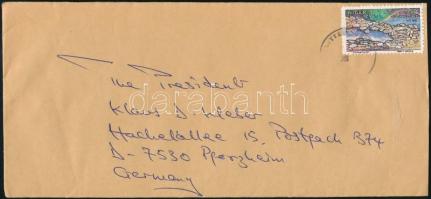 The President
Klaus D. Weber
Hachelallee 15, Postfach 374
D-7530 Pforzheim
Germany
darabanth